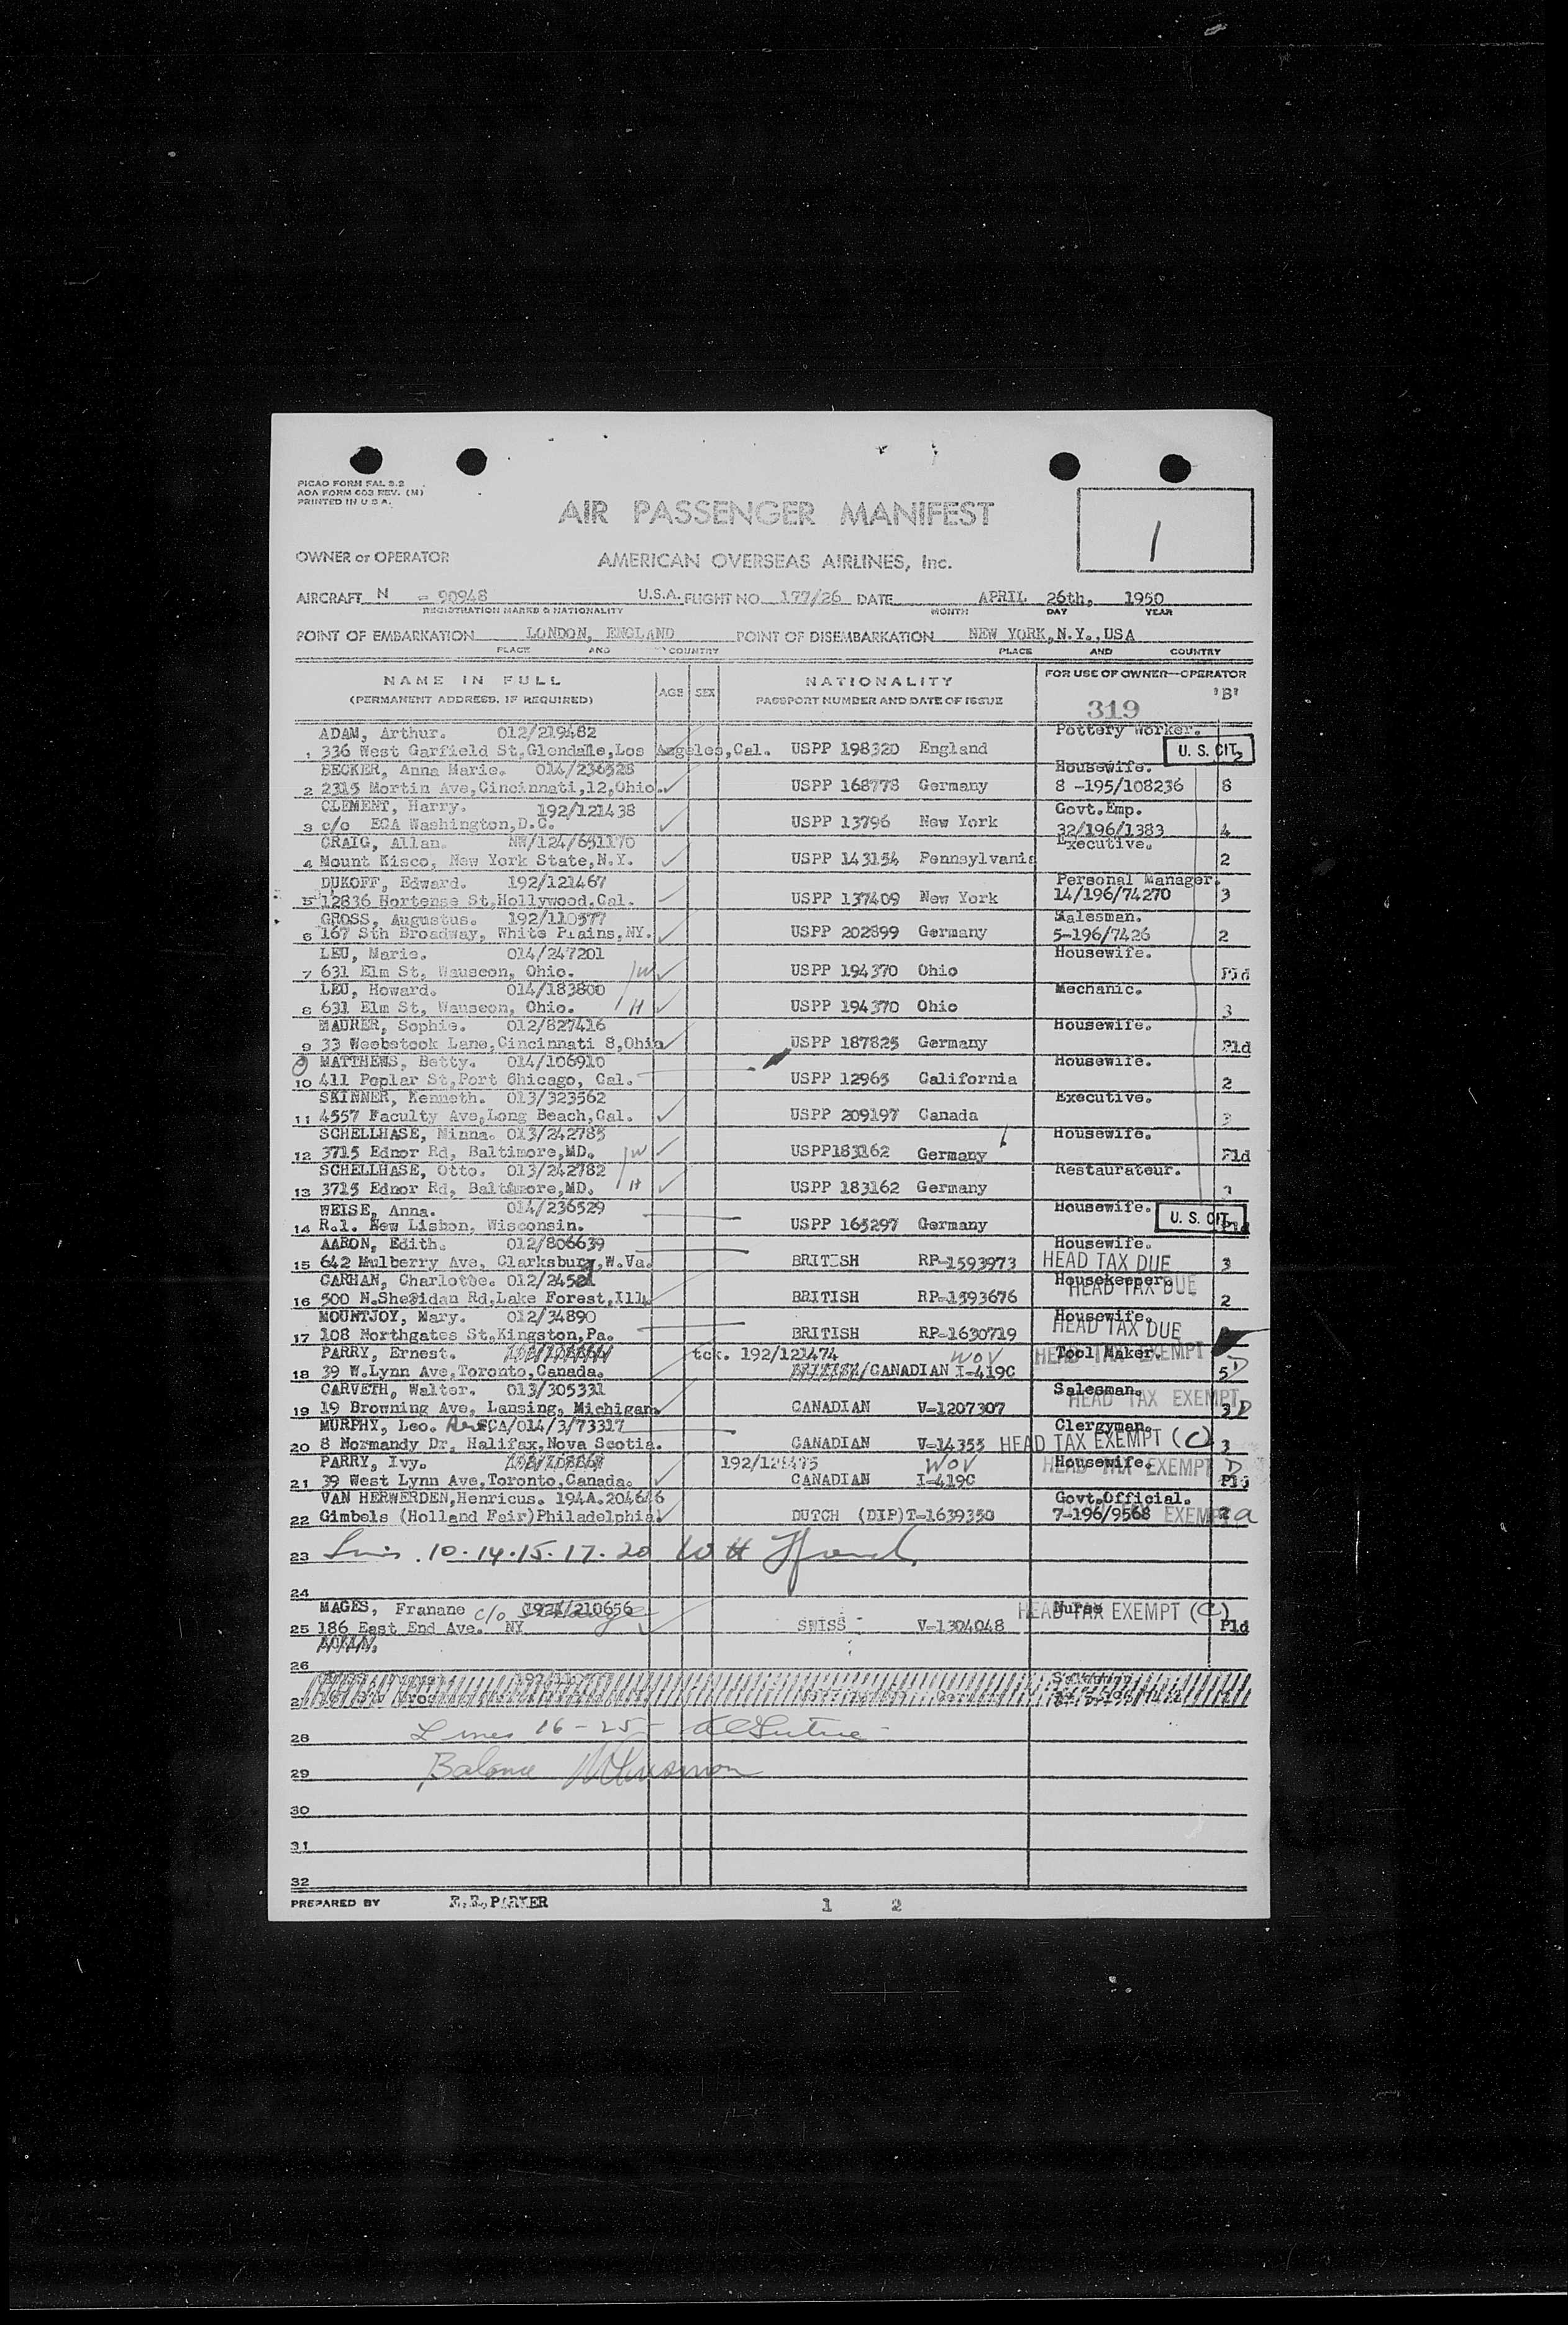 PICAO FORM FAL 5.2
AOA FORM 603 REV. (M)
PRINTED IN U S A.
AIR PASSENGER MANIFEST
1
OWNER or OPERATOR AMERICAN OVERSEAS AIRLINES, Inc.
AIRCRAFT N - 90948 U.S.A. FLIGHT NO. 177/26 DATE APRIL 26th, 1950
REGISTRATION MARKS & NATIONALITY MONTH DAY YEAR
POINT OF EMBARKATION LONDON, ENGLAND POINT OF DISEMBARKATION NEW YORK, N.Y., USA
PLACE AND COUNTRY PLACE AND COUNTRY
NAME IN FULL AGE SEX NATIONALITY FOR USE OF OWNER—OPERATOR
(PERMANENT ADDRESS, IF REQUIRED) PASSPORT NUMBER AND DATE OF ISSUE "B"
319
ADAM, Arthur. 012/219482 Pottery Worker.
1 336 West Garfield St,Glendale,Los Angeles,Cal. USPP 198320 England U. S. CIT. 2
BECKER, Anna Marie. 014/236528 Housewife.
2 2315 Mortin Ave,Cincinnati,12,Ohio. USPP 168778 Germany 8 -195/108236 8
CLEMENT, Harry. 192/121438 Govt.Emp.
3 c/o ECA Washington,D.C. USPP 13796 New York 32/196/1383 4
CRAIG, Allan. NW/124/651170 Executive.
4 Mount Kisco, New York State,N.Y. USPP 143154 Pennsylvania 2
DUKOFF, Edward. 192/121467 Personal Manager.
5 12836 Hortense St,Hollywood.Cal. USPP 137409 New York 14/196/74270 3
GROSS, Augustus. 192/110577 Salesman.
6 167 Sth Broadway, White Plains,NY. USPP 202899 Germany 5-196/7426 2
LEU, Marie. 014/247201 Housewife.
7 631 Elm St, Wauseon, Ohio. W USPP 194370 Ohio Pld
LEU, Howard. 014/183800 Mechanic.
8 631 Elm St, Wauseon, Ohio. H USPP 194370 Ohio 3
MAURER, Sophie. 012/827416 Housewife.
9 33 Weebetook Lane,Cincinnati 8,Ohio USPP 187825 Germany Pld
MATTHEWS, Betty. 014/106910 Housewife.
10 411 Poplar St,Port Chicago, Cal. USPP 12965 California 2
SKINNER, Kenneth. 013/323562 Executive.
11 4557 Faculty Ave,Long Beach,Cal. USPP 209197 Canada 3
SCHELLHASE, Minna. 013/242785 Housewife.
12 3715 Ednor Rd, Baltimore,MD. W USPP183162 Germany Pld
SCHELLHASE, Otto. 013/242782 Restaurateur.
13 3715 Ednor Rd, Baltimore,MD. H USPP 183162 Germany
WEISE, Anna. 014/236529 Housewife.
14 R.1. New Lisbon, Wisconsin. USPP 165297 Germany U. S. CIT. Pld
AARON, Edith. 012/806639 Housewife.
15 642 Mulberry Ave, Clarksburg,W.Va. BRITISH RP-1593973 HEAD TAX DUE 3
CARHAN, Charlotte. 012/2452 Housekeeper.
16 500 N.Sheridan Rd,Lake Forest,Ill. BRITISH RP-1593676 HEAD TAX DUE 2
MOUNTJOY, Mary. 012/34890 Housewife.
17 108 Northgates St,Kingston,Pa. BRITISH RP-1630719 HEAD TAX DUE
PARRY, Ernest. tck. 192/121474 WOV Tool Maker. HEAD TAX EXEMPT
18 39 W.Lynn Ave,Toronto,Canada. /CANADIAN I-419C 5 D
CARVETH, Walter. 013/305331 Salesman.
19 19 Browning Ave, Lansing, Michigan. CANADIAN V-1207307 HEAD TAX EXEMPT 3 D
MURPHY, Leo. Rev CA/014/3/73317 Clergyman.
20 8 Normandy Dr, Halifax,Nova Scotia. CANADIAN V-14355 HEAD TAX EXEMPT (C) 3
PARRY, Ivy. 192/121475 WOV Housewife. HEAD TAX EXEMPT D
21 39 West Lynn Ave,Toronto,Canada. CANADIAN I-419C Pld
VAN HERWERDEN,Henricus. 194A.204646 Govt.Official.
22 Gimbels (Holland Fair)Philadelphia. DUTCH (DIP)T-1639350 7-196/9568 EXEMPT 2 a
23 10.14.15.17.20
24
MAGES, Franane c/o 192A/210656 Nurse HEAD TAX EXEMPT (C)
25 186 East End Ave. NY SWISS V-1304048 Pld
26
27
28 Lines 16-25
29 Balance
30
31
32
PREPARED BY E.E.PARKER 1 2